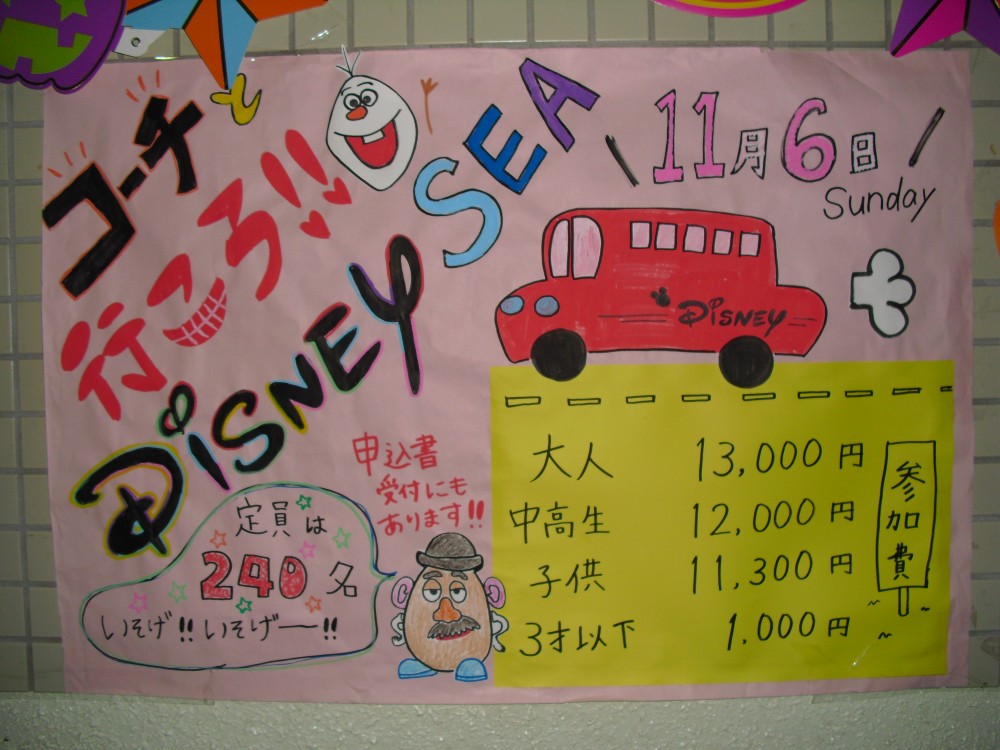 コーチと
行こう!!
DISNEY SEA
11月6日
Sunday
DISNEY
申込書
受付にも
あります!!
定員は
240名
いそげ!!いそげー!!
参加費
大人 13,000円
中高生 12,000円
子供 11,300円
3才以下 1.000円